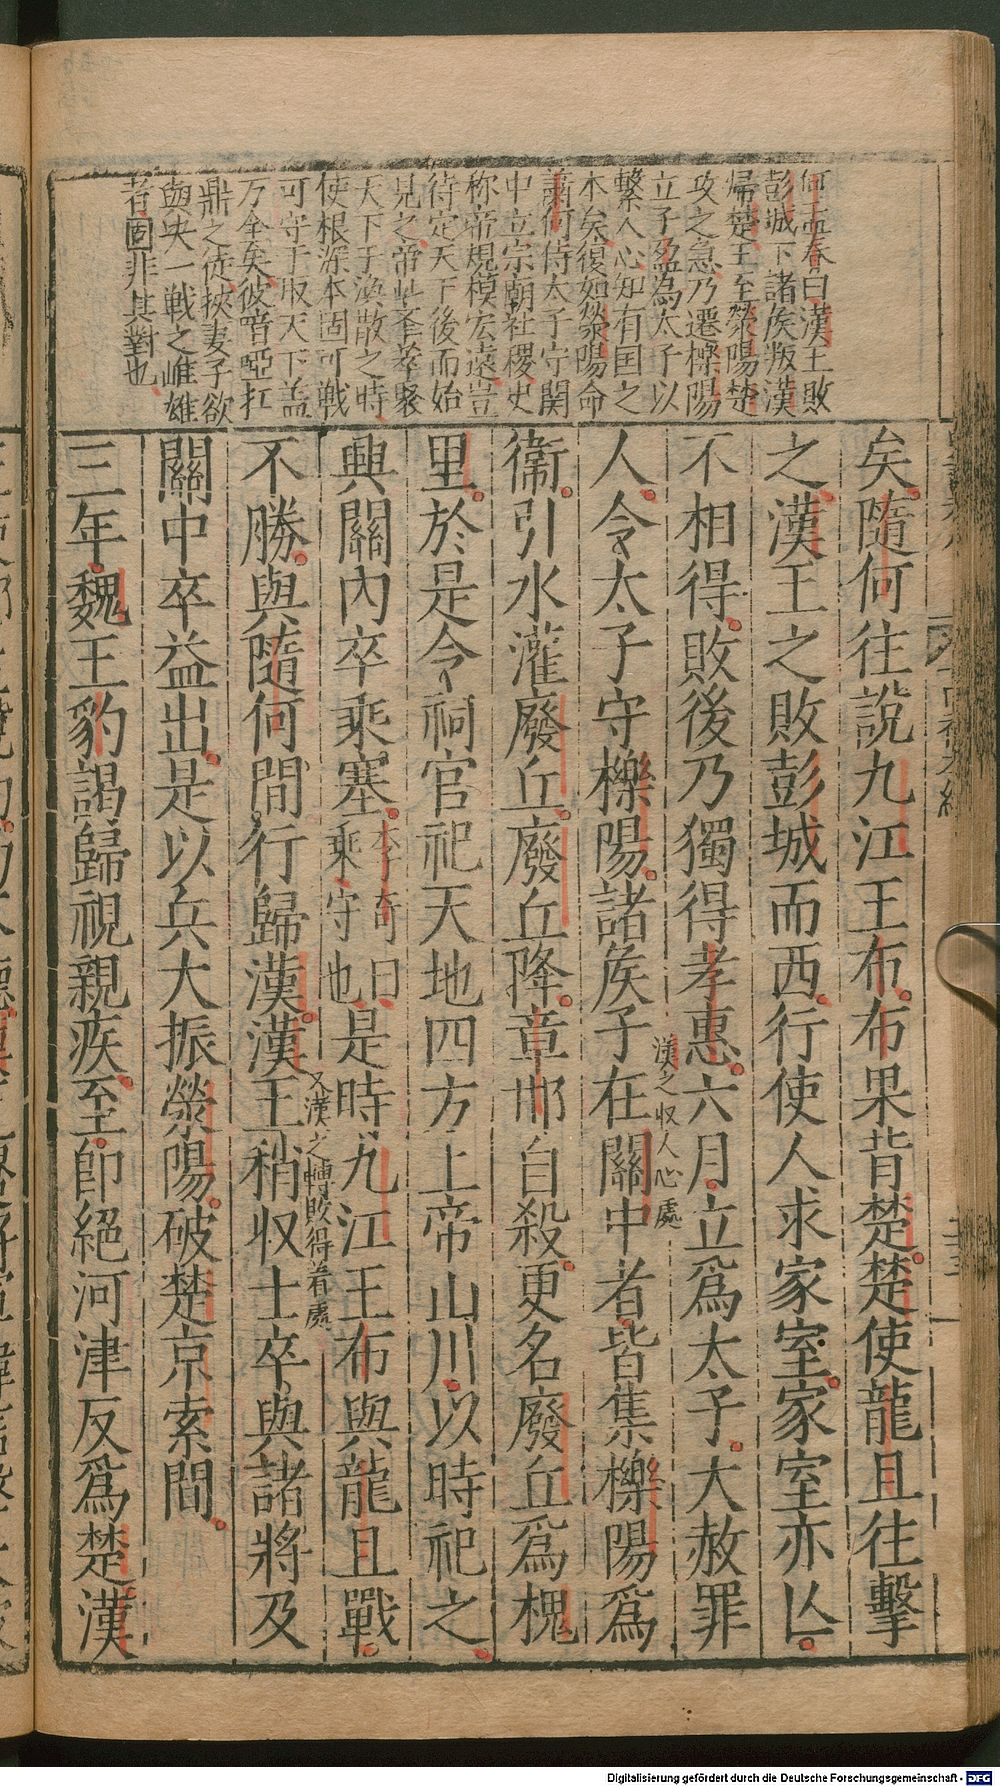 何孟春曰漢王敗
彭城下諸侯叛漢
歸楚王至滎陽楚
攻之急乃遷櫟陽
立子盈為太子以
繫人心知有国之
本矣復如滎陽命
蕭何侍太子守関
中立宗廟社稷史
称帝規模宏遠豈
待定天下後而始
見之帝
天下于渙散之時
使根深本固可戦
可守于収天下盖
万全矣彼喑啞扛
鼎之徒挾妻子欲
與决一戦之雌雄
者固非其對也
矣隨何往說九江王布布果背楚楚使龍且往擊
之漢王之敗彭城而西行使人求家室家室亦亾
不相得敗後乃獨得孝惠六月立爲太子大赦罪
人令太子守櫟陽諸矦子在關中者皆集櫟陽爲
漢之収人心處
衞引水灌廢丘廢丘降章邯自殺更名廢丘爲槐
里於是令祠官祀天地四方上帝山川以時祀之
興關內卒乘塞李奇曰乘守也是時九江王布與龍且戰
不勝與隨何間行歸漢漢王稍収士卒與諸將及
又漢之轉敗得着處
關中卒益出是以兵大振滎陽破楚京索間
三年魏王豹謁歸視親疾至卽絕河津反爲楚漢
Digitalisierung gefördert durch die Deutsche Forschungsgemeinschaft - DFG